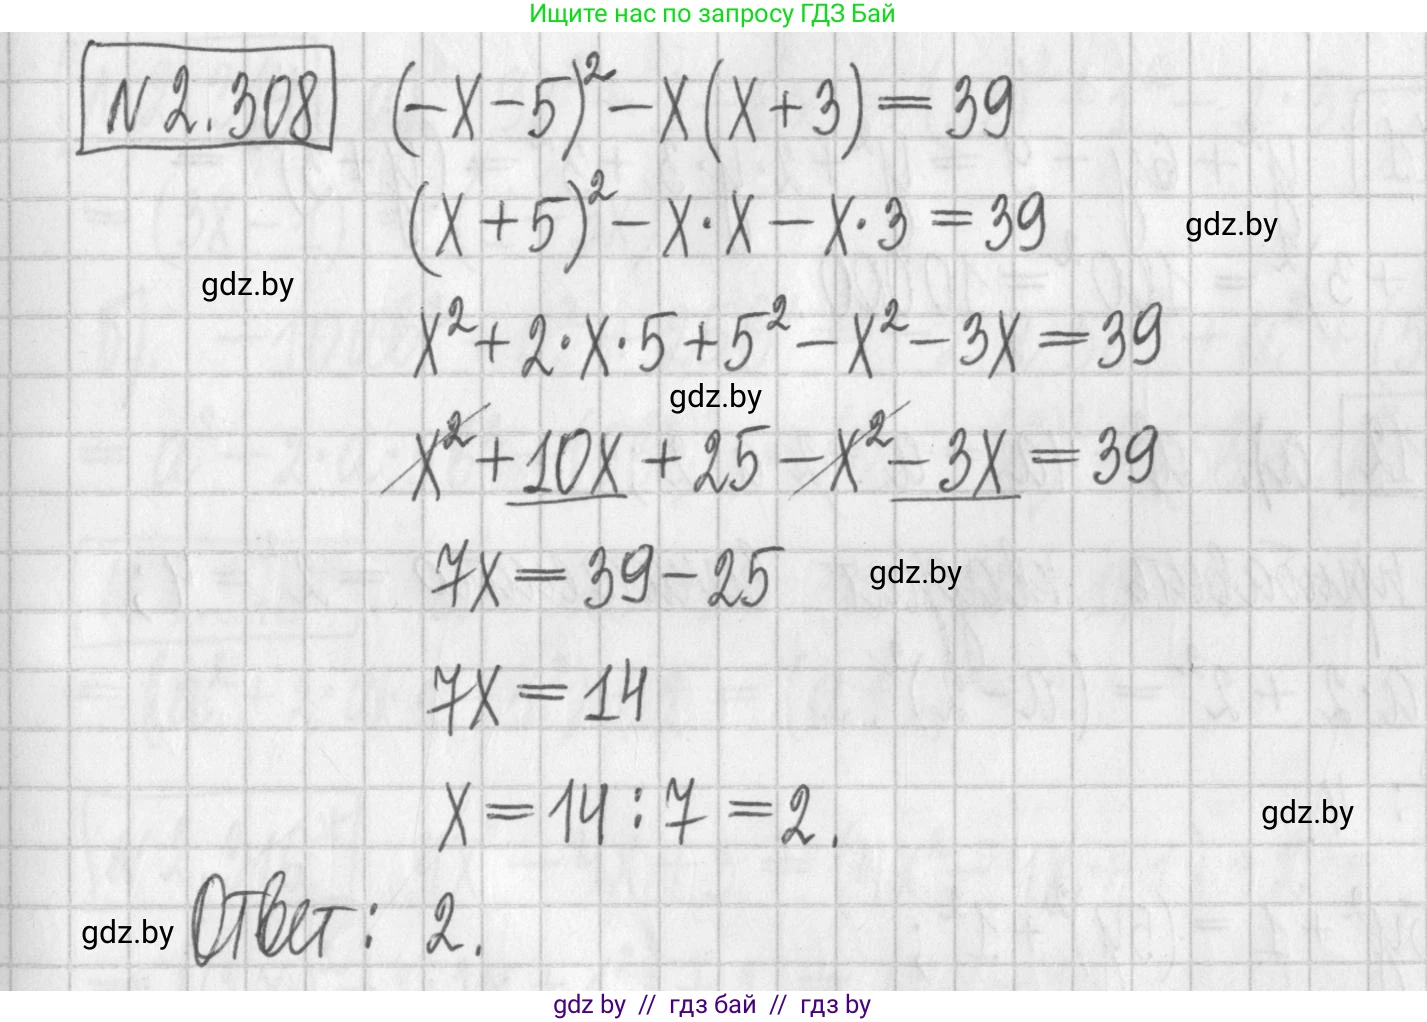 Ищите нас по запросу ГДЗ Бай
N 2.308 (-x-5)² - x(x+3) = 39
(x+5)² - x·x - x·3 = 39
gdz.by
gdz.by
x² + 2·x·5 + 5² - x² - 3x = 39
gdz.by
x² + 10x + 25 - x² - 3x = 39
7x = 39 - 25
gdz.by
7x = 14
x = 14 : 7 = 2.
gdz.by
Ответ: 2.
gdz.by
gdz by // гдз бай // гдз by